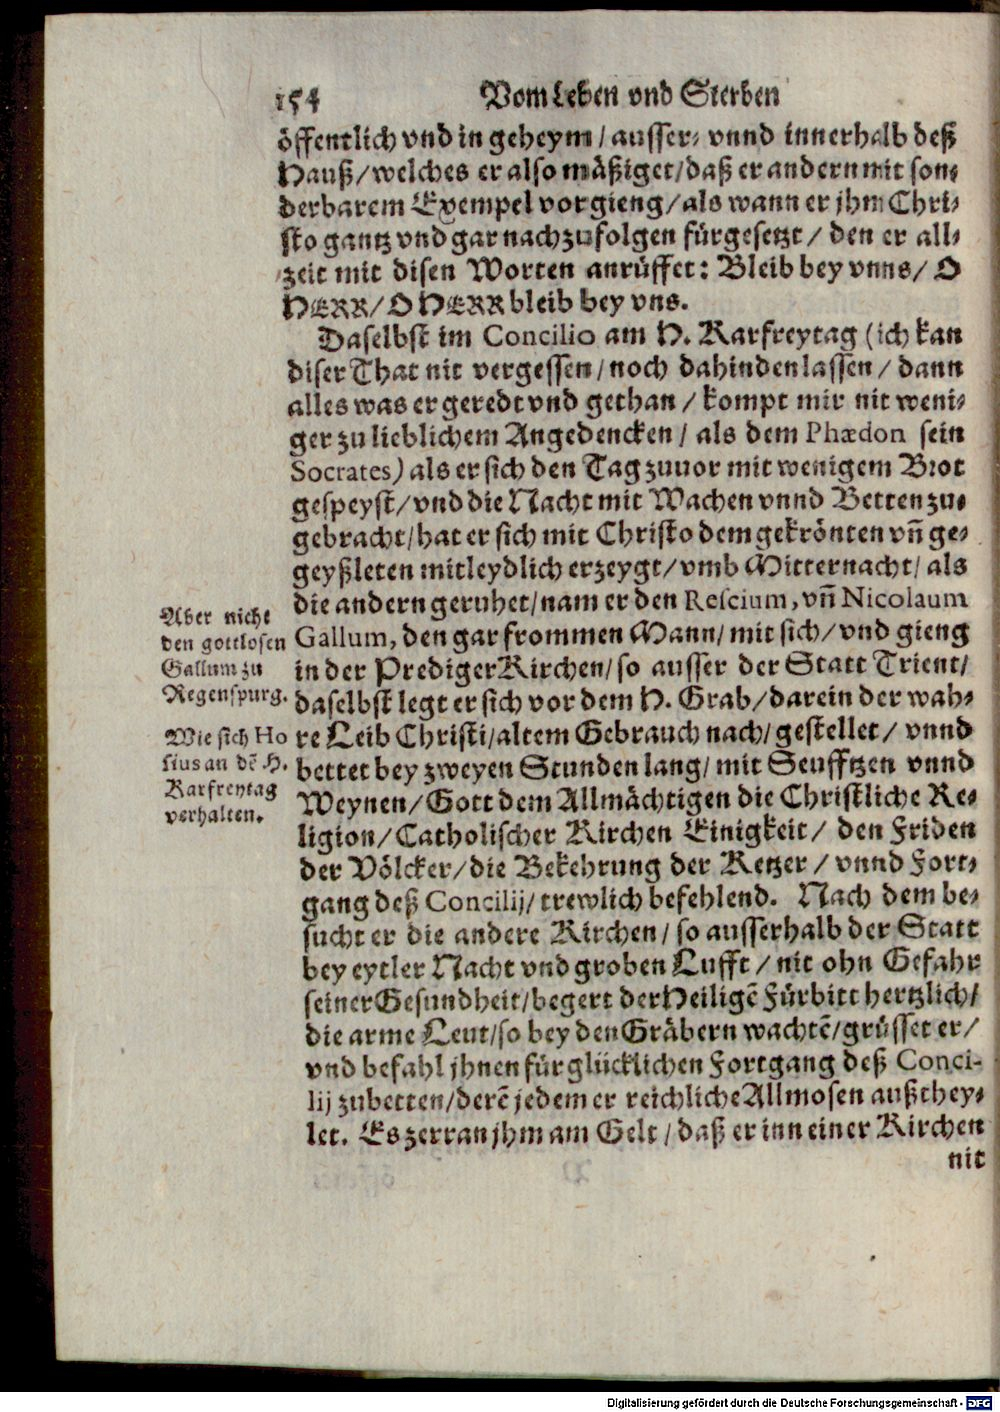 154 Vom Leben vnd Sterben
öffentlich vnd in geheym / ausser- vnnd innerhalb deß
Hauß / welches er also mäßiget / daß er andern mit son-
derbarem Exempel vorgieng / als wann er jhm Chri-
sto gantz vnd gar nachzufolgen fürgesetzt / den er all-
zeit mit disen Worten anrüffet: Bleib bey vnns / O
HERR / O HERR bleib bey vns.
Daselbst im Concilio am H. Karfreytag (ich kan
diser That nit vergessen / noch dahinden lassen / dann
alles was er geredt vnd gethan / kompt mir nit weni-
ger zu lieblichem Angedencken / als dem Phædon sein
Socrates) als er sich den Tag zuuor mit wenigem Brot
gespeyst / vnd die Nacht mit Wachen vnnd Betten zu-
gebracht / hat er sich mit Christo dem gekrönten vñ ge-
geyßleten mitleydlich erzeygt / vmb Mitternacht / als
die andern geruhet / nam er den Rescium, vñ Nicolaum
Gallum, den gar frommen Mann / mit sich / vnd gieng
in der Prediger Kirchen / so ausser der Statt Trient /
daselbst legt er sich vor dem H. Grab / darein der wah-
re Leib Christi / altem Gebrauch nach / gestellet / vnnd
bettet bey zweyen Stunden lang / mit Seufftzen vnnd
Weynen / Gott dem Allmächtigen die Christliche Re-
ligion / Catholischer Kirchen Einigkeit / den Friden
der Völcker / die Bekehrung der Ketzer / vnnd Fort-
gang deß Concilij / trewlich befehlend. Nach dem be-
sucht er die andere Kirchen / so ausserhalb der Statt
bey eytler Nacht vnd groben Lufft / nit ohn Gefahr
seiner Gesundheit / begert der Heiligẽ Fürbitt hertzlich /
die arme Leut / so bey den Gräbern wachtẽ / grüsset er /
vnd befahl jhnen für glücklichen Fortgang deß Conci-
lij zubetten / derẽ jedem er reichliche Allmosen außthey-
let. Es zerran jhm am Gelt / daß er inn einer Kirchen
nit
Aber nicht
den gottlosen
Gallum zu
Regenspurg.
Wie sich Ho
sius an dẽ H.
Karfreytag
verhalten.
Digitalisierung gefördert durch die Deutsche Forschungsgemeinschaft - DFG